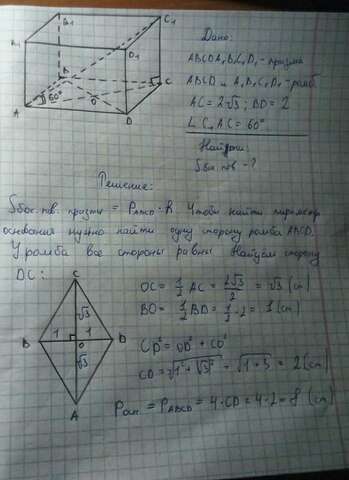 Дано:
ABCDA₁B₁C₁D₁ - призма
ABCD и A₁B₁C₁D₁ - ромб
AC = 2√3; BD = 2
∠ C₁AC = 60°
Найти:
Sбок. пов - ?
B₁
C₁
A₁
D₁
B
C
60°
O
A
D
Решение:
Sбок. пов. призмы = P_ABCD · h. Чтобы найти периметр
основания нужно найти одну сторону ромба ABCD.
У ромба все стороны равны. Найдем сторону
DC:
C
√3
B
1
1
D
O
√3
A
OC = 1/2 AC = 2√3/2 = √3 (см)
BO = 1/2 BD = 1/2 · 2 = 1 (см)
CD² = OD² + CO²
CD = √1² + √3² = √1+3 = 2 (см)
Pосн = P_ABCD = 4·CD = 4·2 = 8 (см)